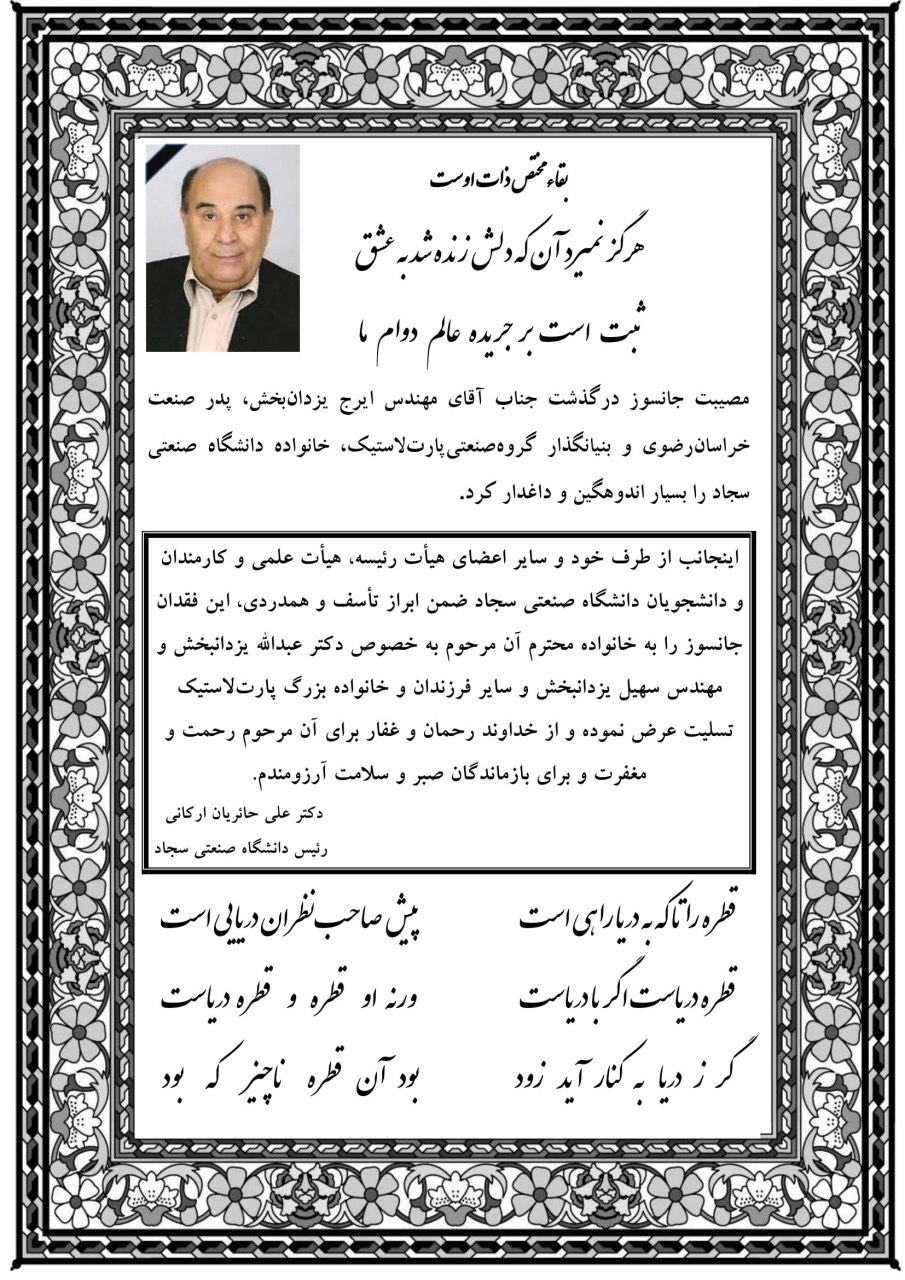 بقاء مختص ذات اوست
هرگز نمیرد آن که دلش زنده شد به عشق
ثبت است بر جریده عالم دوام ما
مصیبت جانسوز درگذشت جناب آقای مهندس ایرج یزدان‌بخش، پدر صنعت
خراسان‌رضوی و بنیانگذار گروه‌صنعتی‌پارت‌لاستیک، خانواده دانشگاه صنعتی
سجاد را بسیار اندوهگین و داغدار کرد.
اینجانب از طرف خود و سایر اعضای هیأت رئیسه، هیأت علمی و کارمندان
و دانشجویان دانشگاه صنعتی سجاد ضمن ابراز تأسف و همدردی، این فقدان
جانسوز را به خانواده محترم آن مرحوم به خصوص دکتر عبدالله یزدانبخش و
مهندس سهیل یزدانبخش و سایر فرزندان و خانواده بزرگ پارت‌لاستیک
تسلیت عرض نموده و از خداوند رحمان و غفار برای آن مرحوم رحمت و
مغفرت و برای بازماندگان صبر و سلامت آرزومندم.
دکتر علی حائریان ارکانی
رئیس دانشگاه صنعتی سجاد
قطره را تا که به دریا راهی است پیش صاحب نظران دریایی است
قطره دریاست اگر با دریاست ورنه او قطره و قطره دریاست
گر ز دریا به کنار آید زود بود آن قطره ناچیز که بود